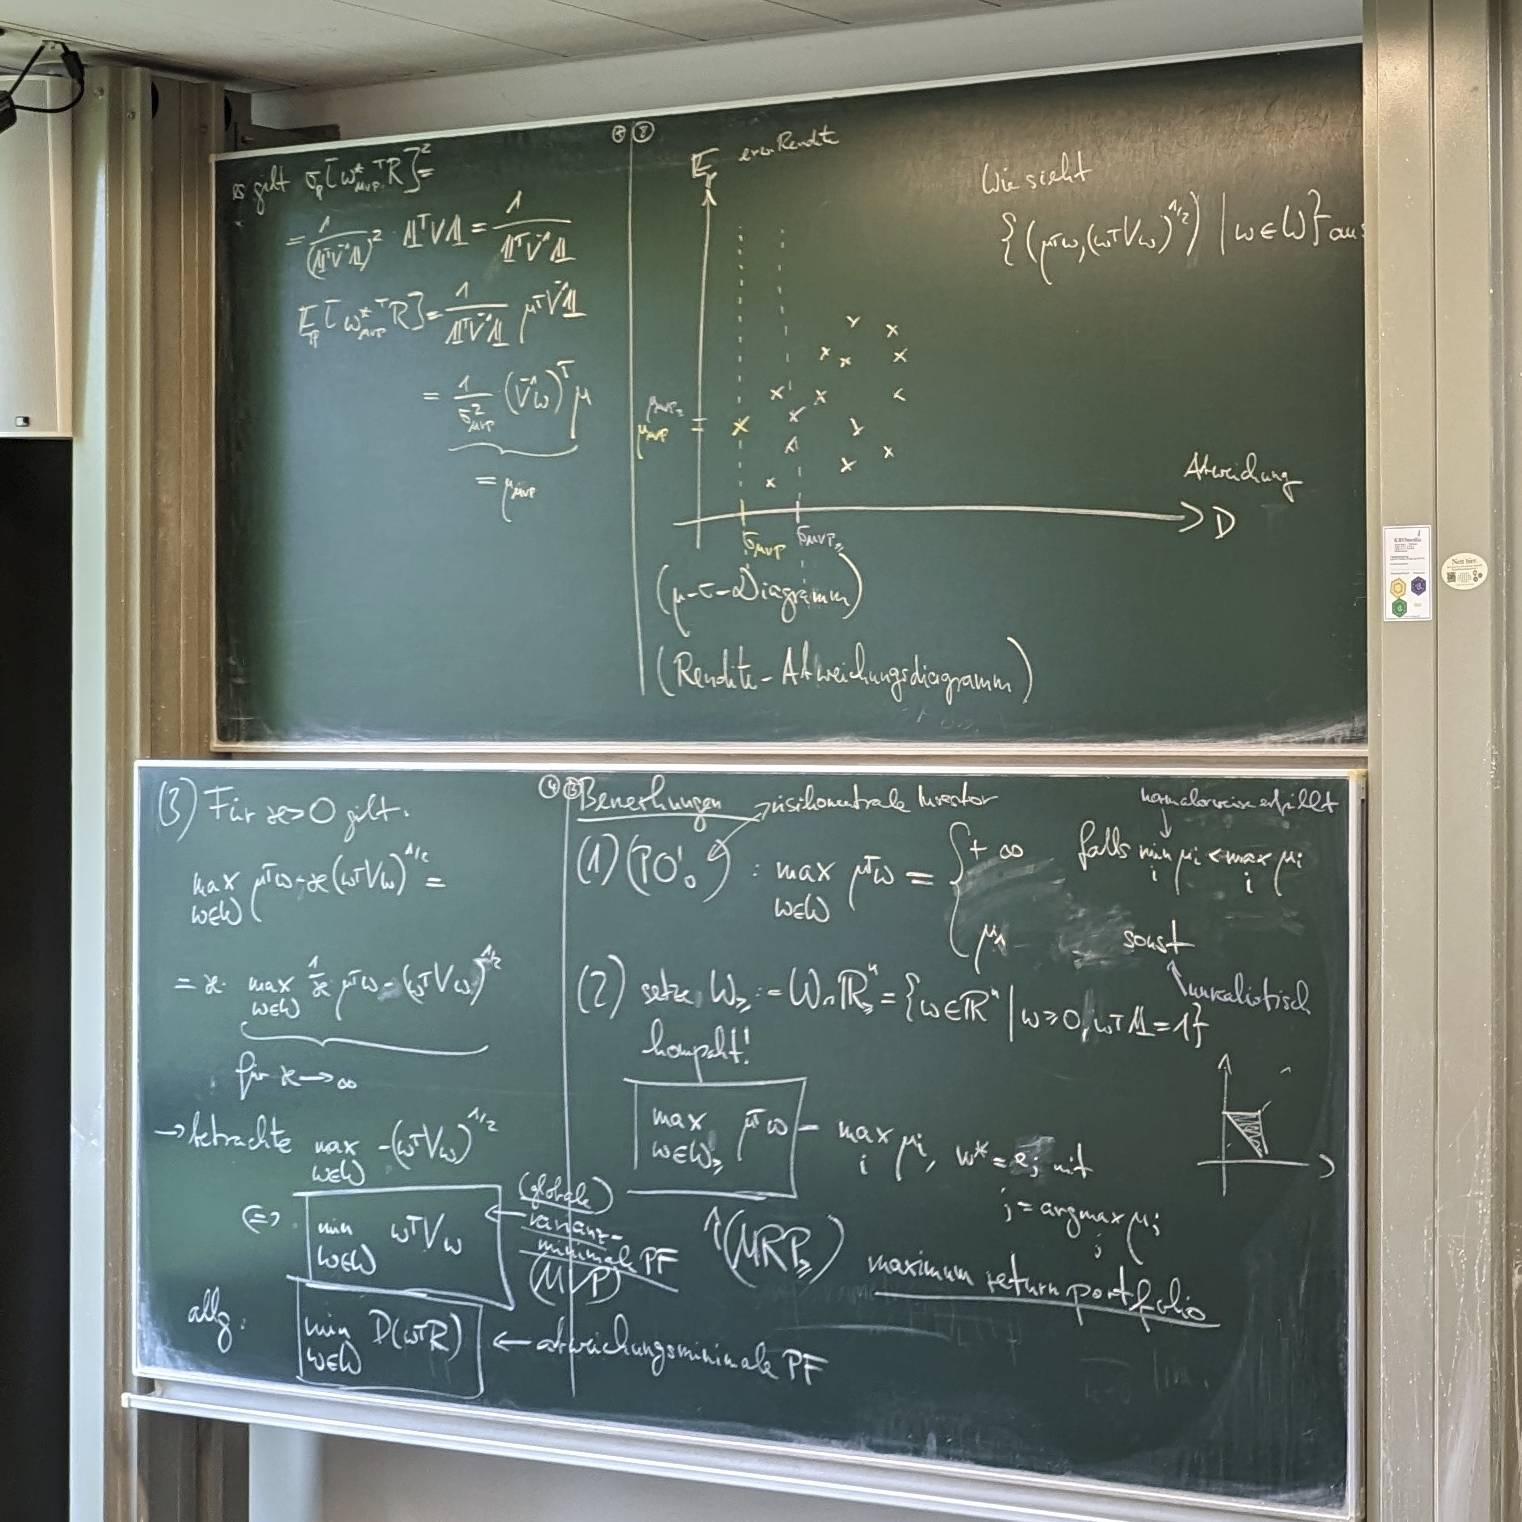 es gilt σ_P[w*_MVP^T R]² =
= 1/(𝟙^T V^-1 𝟙)² · 𝟙^T V 𝟙 = 1/(𝟙^T V^-1 𝟙)
E_P[w*_MVP^T R] = 1/(𝟙^T V^-1 𝟙) μ^T V^-1 𝟙
= 1/σ²_MVP · (V^-1 w)^T μ
= μ_MVP
⑧
E_P erw. Rendite
Wie sieht
{(μ^T w, (w^T V w)^1/2) | w ∈ W} aus
μ_MVP≥
μ_MVP
Abweichung
D
σ_MVP σ_MVP≥
(μ-σ-Diagramm)
(Rendite-Abweichungsdiagramm)
(3) Für ϰ>0 gilt:
max w∈W μ^T w - ϰ(w^T V w)^1/2 =
= ϰ · max w∈W 1/ϰ μ^T w - (w^T V w)^1/2
für ϰ → ∞
→ betrachte max w∈W -(w^T V w)^1/2
⇔ min w∈W w^T V w
(globale)
varianz-
minimale PF
(MVP)
allg. min w∈W D(w^T R) ← abweichungsminimale PF
④ ⑤ Bemerkungen
risikoneutrale Investor
normalerweise erfüllt
(1) (PO'_0) : max w∈W μ^T w = { +∞ falls min_i μ_i < max_i μ_i
μ_1 sonst
unrealistisch
(2) setze W_≥ := W ∩ ℝ^n_≥ = {w ∈ ℝ^n | w ≥ 0, w^T 𝟙 = 1}
kompakt!
max w∈W_≥ μ^T w = max_i μ_i, w* = e_j mit
j = argmax_j μ_j
↑ (MRP_≥) maximum return portfolio